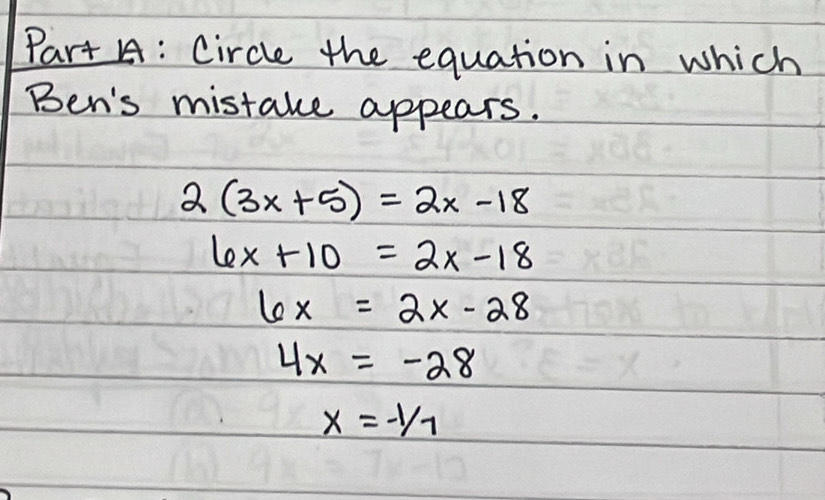 Part A: Circle the equation in which
Ben's mistake appears.
2(3x+5) = 2x-18
6x+10 = 2x-18
6x = 2x-28
4x = -28
x = -1/7